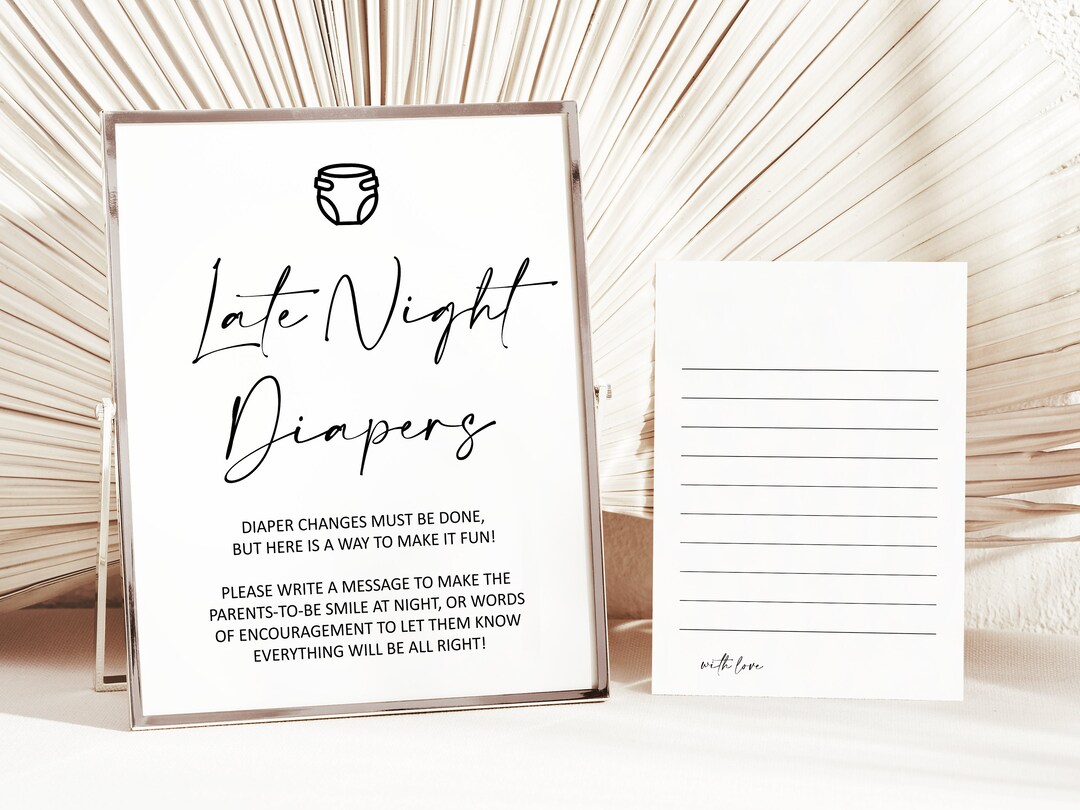 Late Night
Diapers
DIAPER CHANGES MUST BE DONE,
BUT HERE IS A WAY TO MAKE IT FUN!
PLEASE WRITE A MESSAGE TO MAKE THE
PARENTS-TO-BE SMILE AT NIGHT, OR WORDS
OF ENCOURAGEMENT TO LET THEM KNOW
EVERYTHING WILL BE ALL RIGHT!
with love